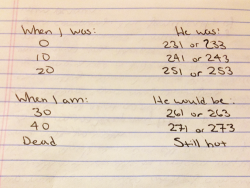 When I was: He was:
0 231 or 233
10 241 or 243
20 251 or 253
When I am: He would be:
30 261 or 263
40 271 or 273
Dead Still hot